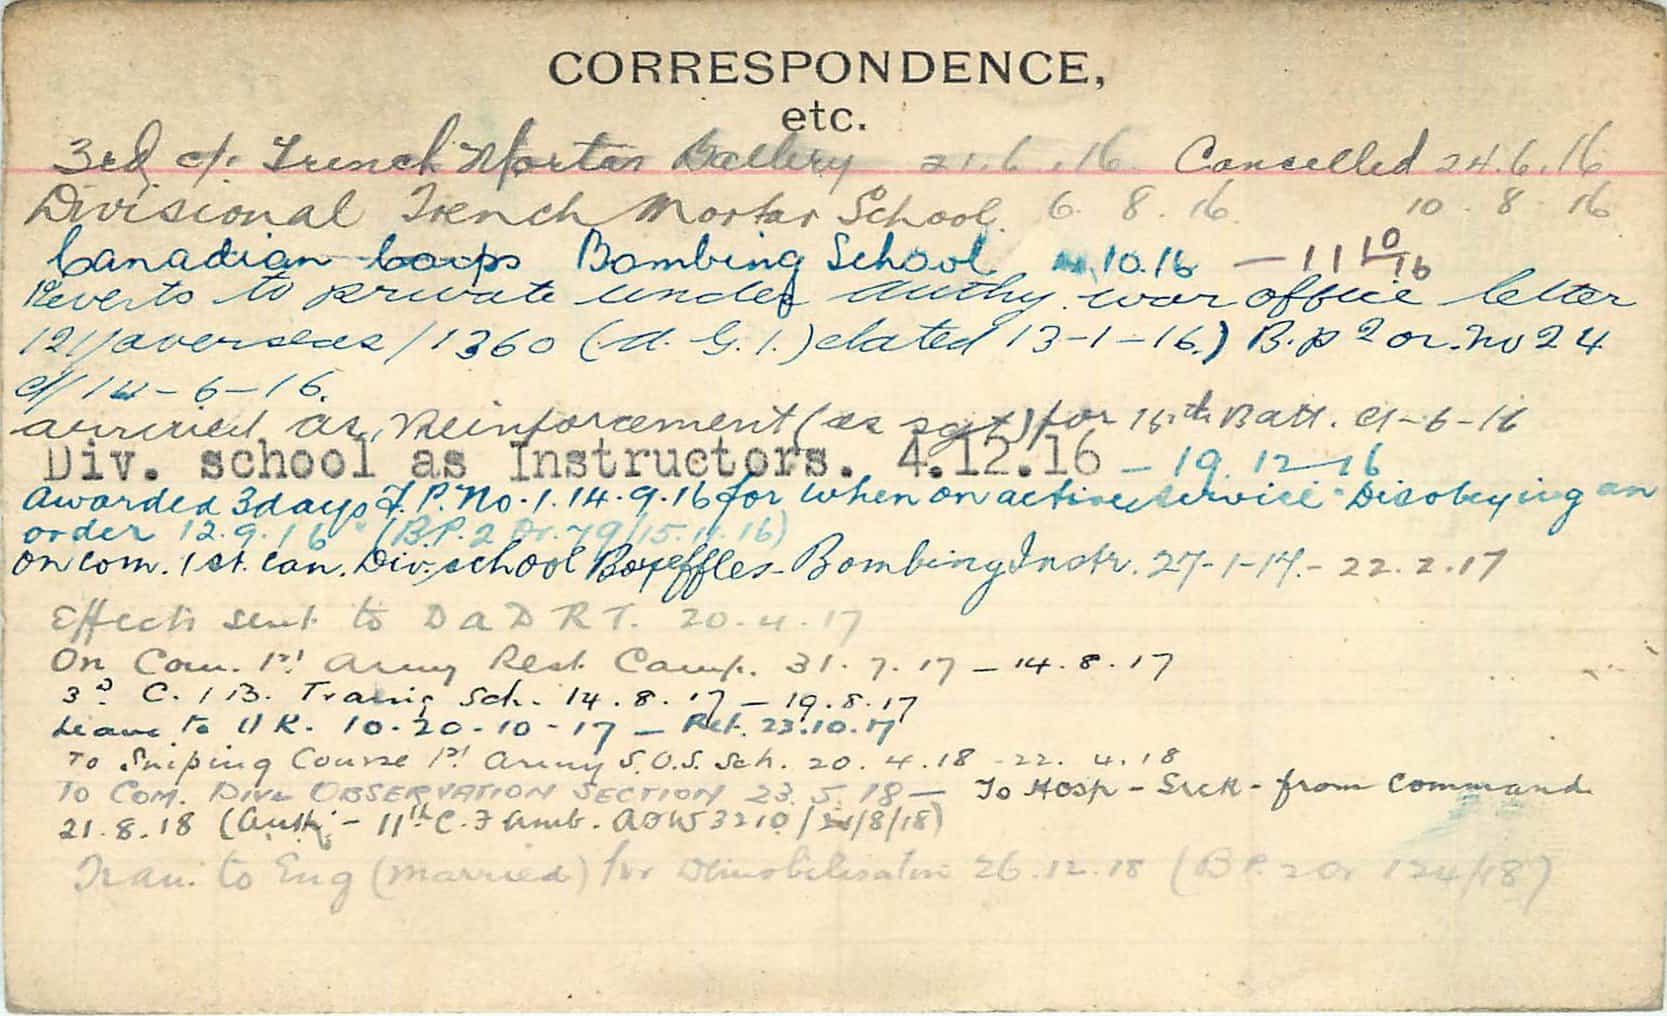 CORRESPONDENCE,
etc.
3rd c/. Trench Mortar Battery 21.6.16 Cancelled 24.6.16
Divisional Trench Mortar School. 6. 8. 16. 10. 8. 16
Canadian Corps Bombing School 10.16 — 11 10/16
Reverts to private under Authy. war office letter
121/overseas/1360 (A. G. 1.) dated 13-1-16.) B.p 2 or. no 24
d/ 14-6-16.
arrived as Reinforcement (as sgt) for 16th Batt. -6-16
Div. school as Instructors. 4.12.16 — 19.12-16
Awarded 3days F.P. No. 1. 14.9.16 for when on active service "Disobeying an
order 12.9.16" (B.P.2 Or. 79/15.11.16)
On com. 1st. Can. Div. school Boyeffles - Bombing Instr. 27-1-17.- 22.2.17
Effects sent to D a D R T. 20.4.17
On Com. 1st Army Rest Camp. 31.7.17 — 14.8.17
3rd C. I B. Traing Sch. 14.8.17 — 19.8.17
Leave to U K. 10-20-10-17 — Ret. 23.10.17
To Sniping Course 1st Army S.O.S. Sch. 20.4.18 - 22.4.18
To Com. Divl Observation Section 23.5.18 — To Hosp - Sick - from Command
21.8.18 (Auth; - 11th C. F Amb. AOW3210/21/8/18)
Tran. to Eng (married) for Demobilisation 26.12.18 (B P. 2 Or 124/18)